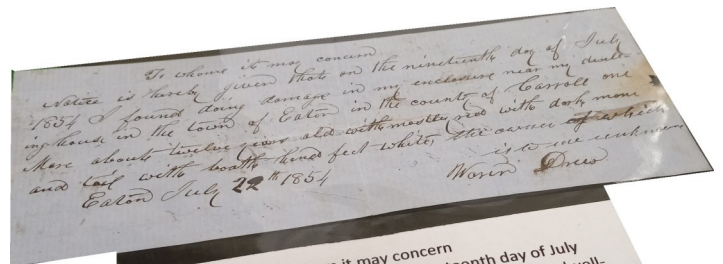 To whome it may concern
Notice is hereby given that on the nineteenth day of July
1854 I found doing damage in my enclosure near my dwell-
inghouse in the town of Eaton in the county of Carroll one
Mare about twelve years old with mostly red with dark mane
and tail with boath hind feet white, the owner of which
is to me unknown
Eaton July 22th 1854
Drew
it may concern
teenth day of July